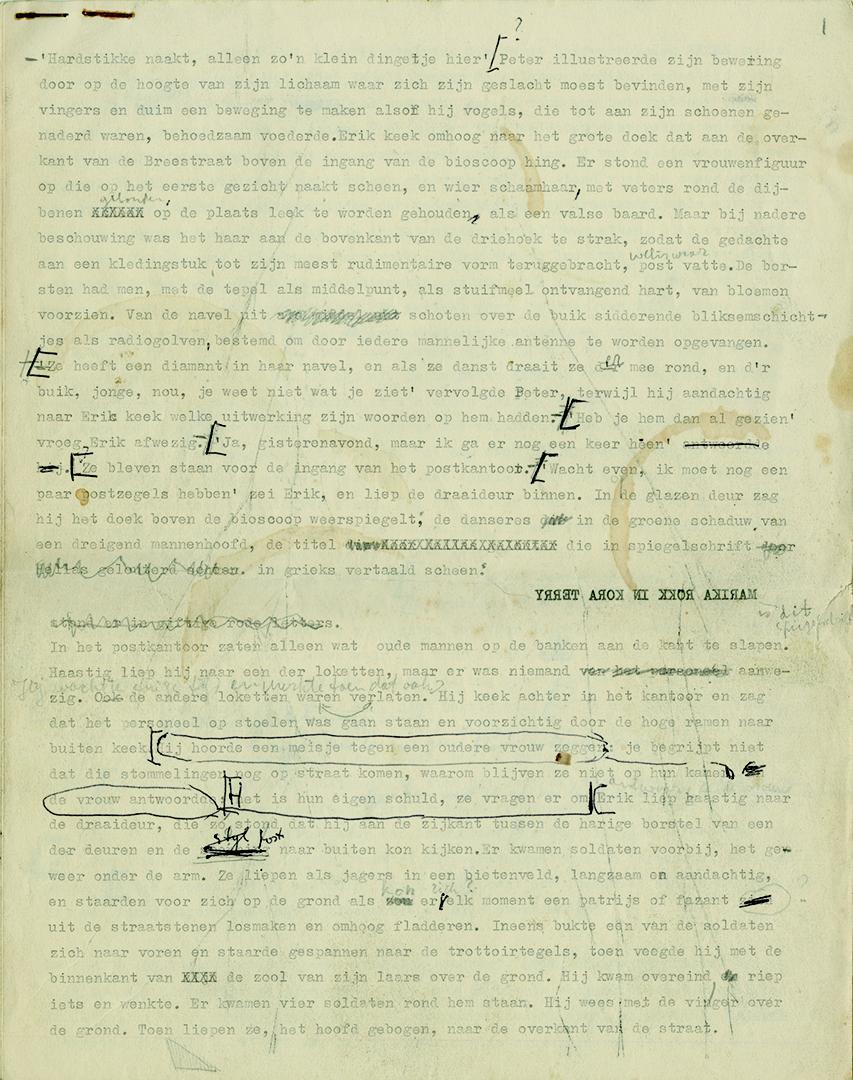 ?
1
-'Hardstikke naakt, alleen zo'n klein dingetje hier' [Peter illustreerde zijn bewering
door op de hoogte van zijn lichaam waar zich zijn geslacht moest bevinden, met zijn
vingers en duim een beweging te maken alsof hij vogels, die tot aan zijn schoenen ge-
naderd waren, behoedzaam voederde.Erik keek omhoog naar het grote doek dat aan de over-
kant van de Breestraat boven de ingang van de bioscoop hing. Er stond een vrouwenfiguur
op die op het eerste gezicht naakt scheen, en wier schaamhaar, met veters rond de dij-
gebonden,
benen XXXXXX op de plaats leek te worden gehouden, als een valse baard. Maar bij nadere
beschouwing was het haar aan de bovenkant van de driehoek te strak, zodat de gedachte
weliswaar
aan een kledingstuk, tot zijn meest rudimentaire vorm teruggebracht, post vatte.De bor-
sten had men, met de tepel als middelpunt, als stuifmeel ontvangend hart, van bloemen
voorzien. Van de navel uit schoten over de buik sidderende bliksemschicht-
jes als radiogolven, bestemd om door iedere mannelijke antenne te worden opgevangen.
['Ze heeft een diamant in haar navel, en als ze danst draait ze die mee rond, en d'r
buik, jonge, nou, je weet niet wat je ziet' vervolgde Peter, terwijl hij aandachtig
naar Erik keek welke uitwerking zijn woorden op hem hadden.-['Heb je hem dan al gezien'
vroeg Erik afwezig.-['Ja, gisterenavond, maar ik ga er nog een keer heen' antwoordde
hij.[Ze bleven staan voor de ingang van het postkantoor.-['Wacht even, ik moet nog een
paar postzegels hebben' zei Erik, en liep de draaideur binnen. In de glazen deur zag
hij het doek boven de bioscoop weerspiegelt, de danseres in de groene schaduw van
een dreigend mannenhoofd, de titel XXXXXXXXXXXXXXXXXX die in spiegelschrift
in grieks vertaald scheen:
MARIKA ROKK IN KORA TERRY
is dit
stond er in giftige rode letters.
In het postkantoor zaten alleen wat oude mannen op de banken aan de kant te slapen.
Haastig liep hij naar een der loketten, maar er was niemand van het personeel aanwe-
zig. Ook de andere loketten waren verlaten. Hij keek achter in het kantoor en zag
dat het personeel op stoelen was gaan staan en voorzichtig door de hoge ramen naar
buiten keek[Hij hoorde een meisje tegen een oudere vrouw zeggen: je begrijpt niet
dat die stommelingen nog op straat komen, waarom blijven ze niet op hun kamer
de vrouw antwoordde[Het is hun eigen schuld, ze vragen er om[Erik liep haastig naar
de draaideur, die zo stond dat hij aan de zijkant tussen de harige borstel van een
stijl post
der deuren en de naar buiten kon kijken.Er kwamen soldaten voorbij, het ge-
weer onder de arm. Ze liepen als jagers in een bietenveld, langzaam en aandachtig,
kon zich?
en staarden voor zich op de grond als er elk moment een patrijs of fazant
uit de straatstenen losmaken en omhoog fladderen. Ineens bukte een van de soldaten
zich naar voren en staarde gespannen naar de trottoirtegels, toen veegde hij met de
binnenkant van XXXX de zool van zijn laars over de grond. Hij kwam overeind riep
iets en wenkte. Er kwamen vier soldaten rond hem staan. Hij wees met de vinger over
de grond. Toen liepen ze, het hoofd gebogen, naar de overkant van de straat.